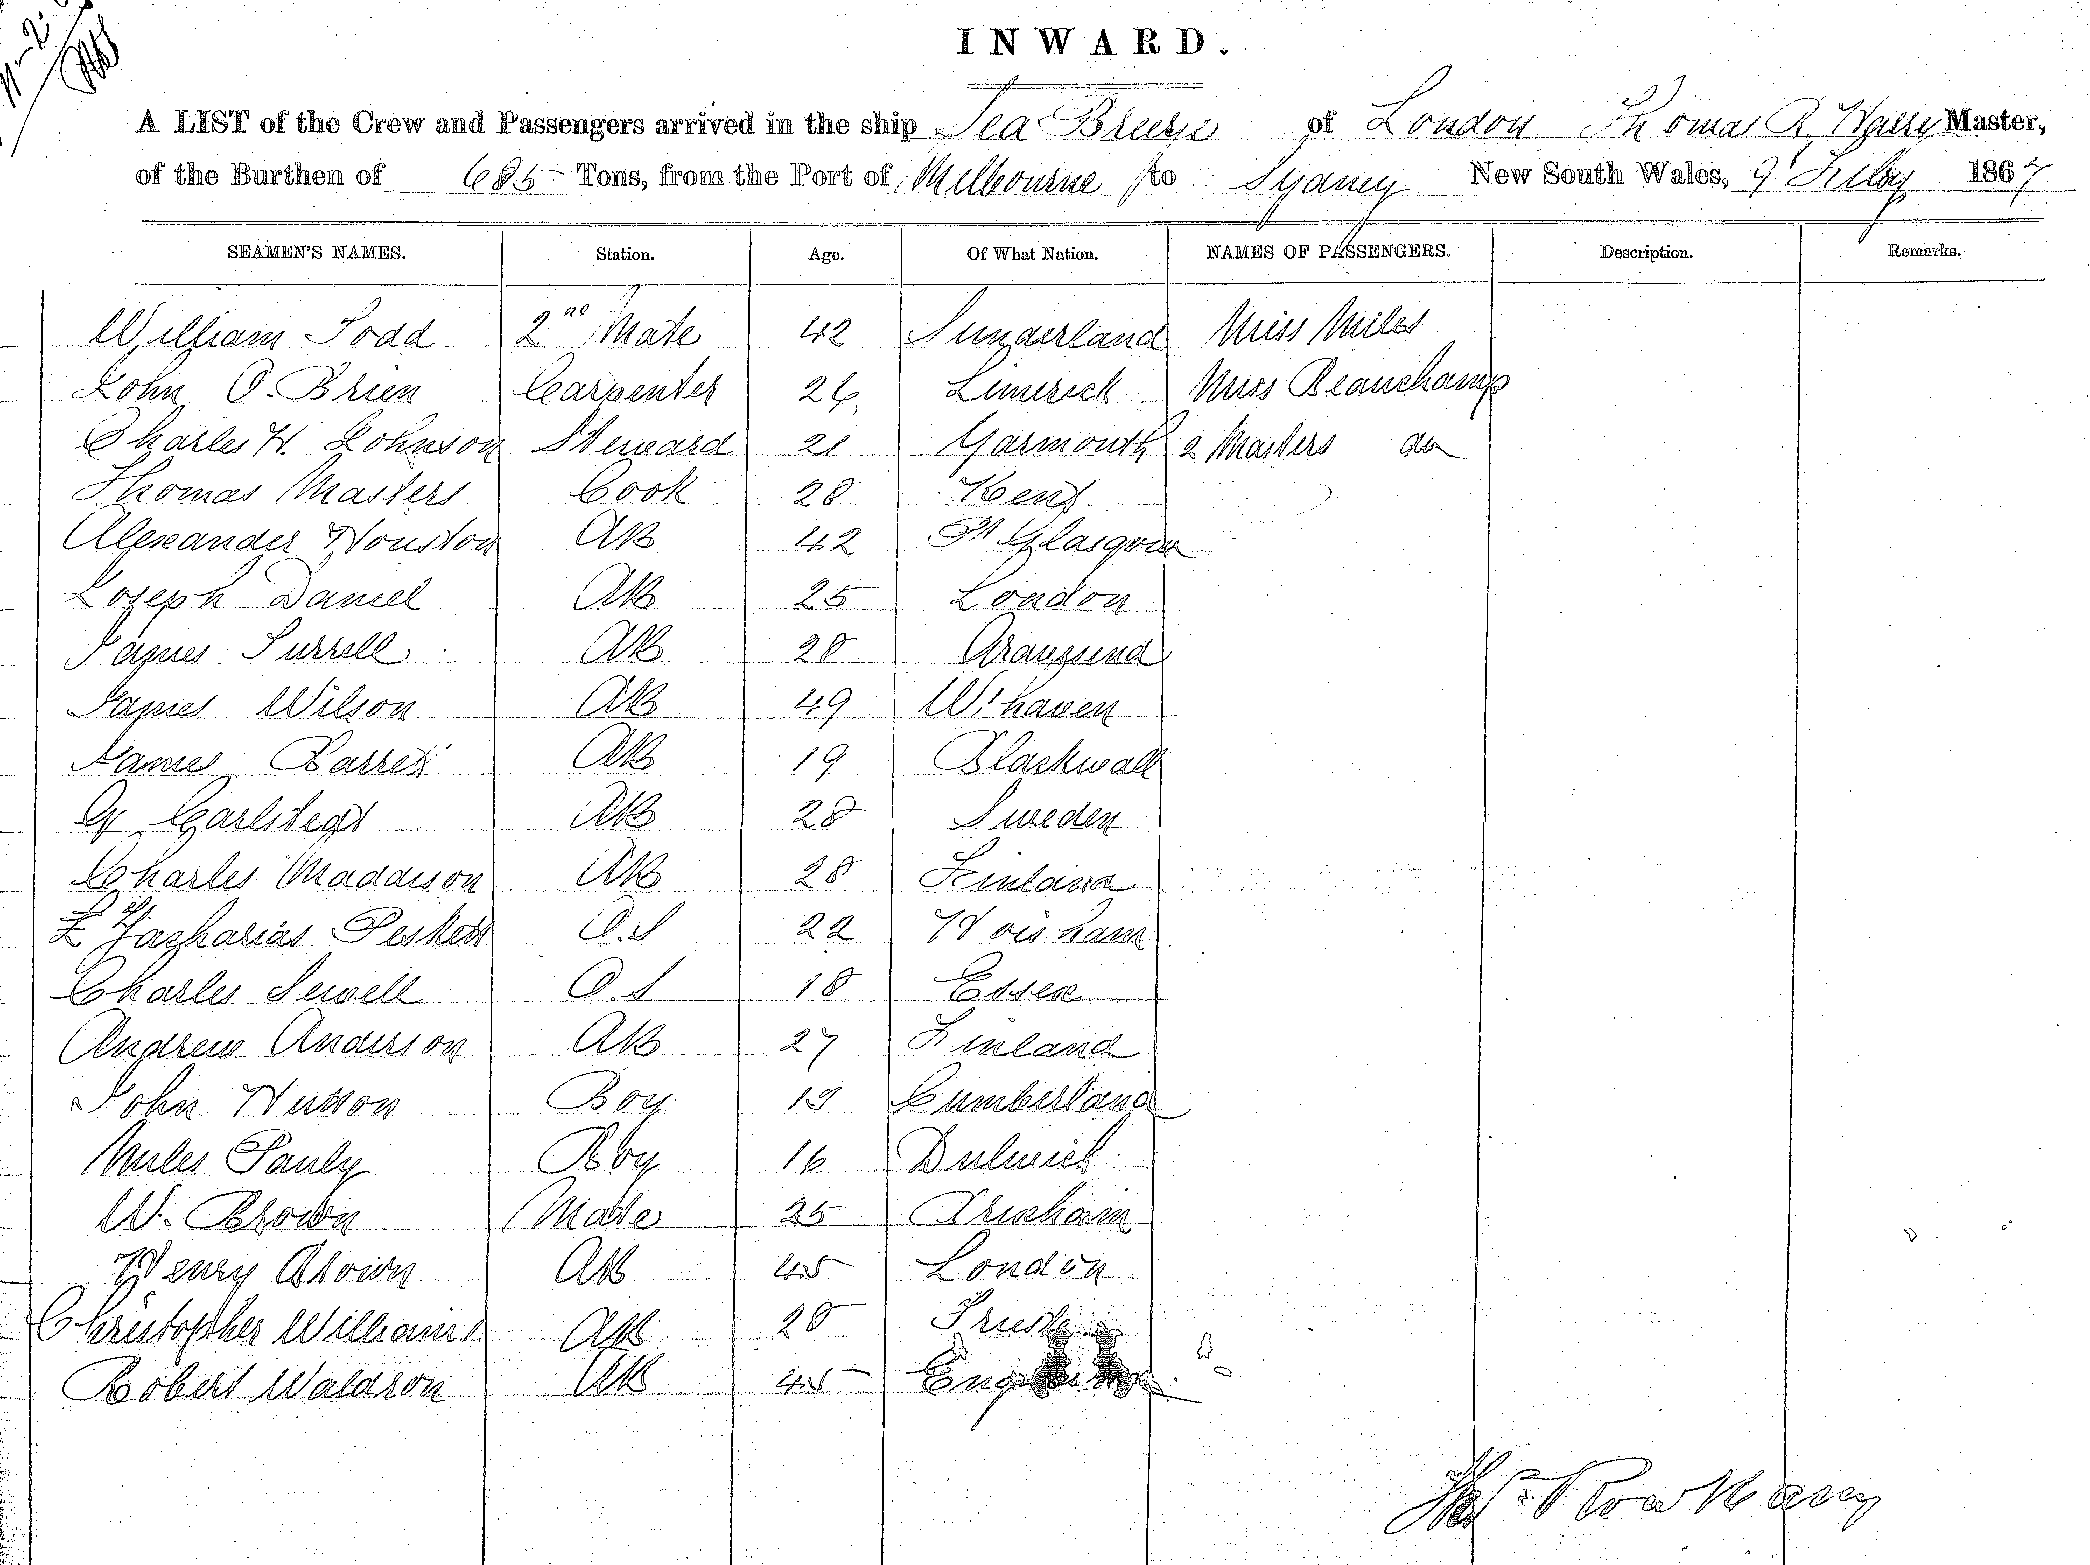 INWARD.
A LIST of the Crew and Passengers arrived in the ship Sea Breeze of London Thomas R. Harry Master,
of the Burthen of 685 Tons, from the Port of Melbourne to Sydney New South Wales, 9 Feby 1867
SEAMEN'S NAMES. Station. Age. Of What Nation. NAMES OF PASSENGERS. Description. Remarks.
William Todd 2nd Mate 42 Sunderland Miss Miles
John O.Brien Carpenter 24 Limerick Miss Beauchamp
Charles H. Johnson Steward 21 Yarmouth 2 Masters do
Thomas Masters Cook 28 Kent
Alexander Houston AB 42 Pt Glasgow
Joseph Daniel AB 25 London
James Surrell AB 28
James Wilson AB 49 W'haven
James Barrett AB 19 Blackwall
AB 28 Sweden
Charles Maddison AB 28 Finland
Zacharias Peskett O.S 22
Charles Sewell O.S 18 Essex
Andrew Anderson AB 27 Finland
John Boy Cumberland
Miles Pauly Boy 16 Dulwich
W. Brown Mate 25 Brixham
Henry Brown AB 45 London
Christopher Williams AB 28 Trieste
Robert Waldron AB 45